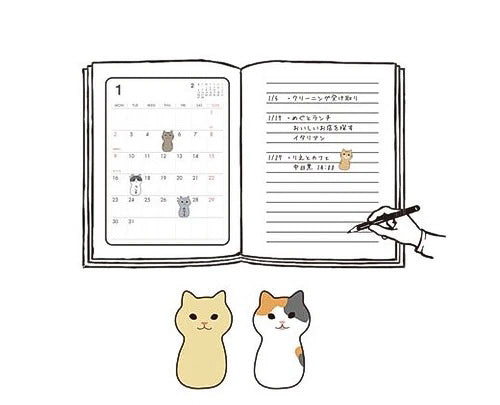 1 2
MON TUE WED THU FRI SAT SUN
1
2 3 4 6 7 8
9 10 11 12 13 14 15
16 18 19 20 21 22
23 24 25 26 28 29
30 31
1/5 ・クリーニング受け取り
1/17 ・めぐとランチ
おいしいお店を探す
イタリアン
1/27 ・りえとカフェ
中目黒 18:00